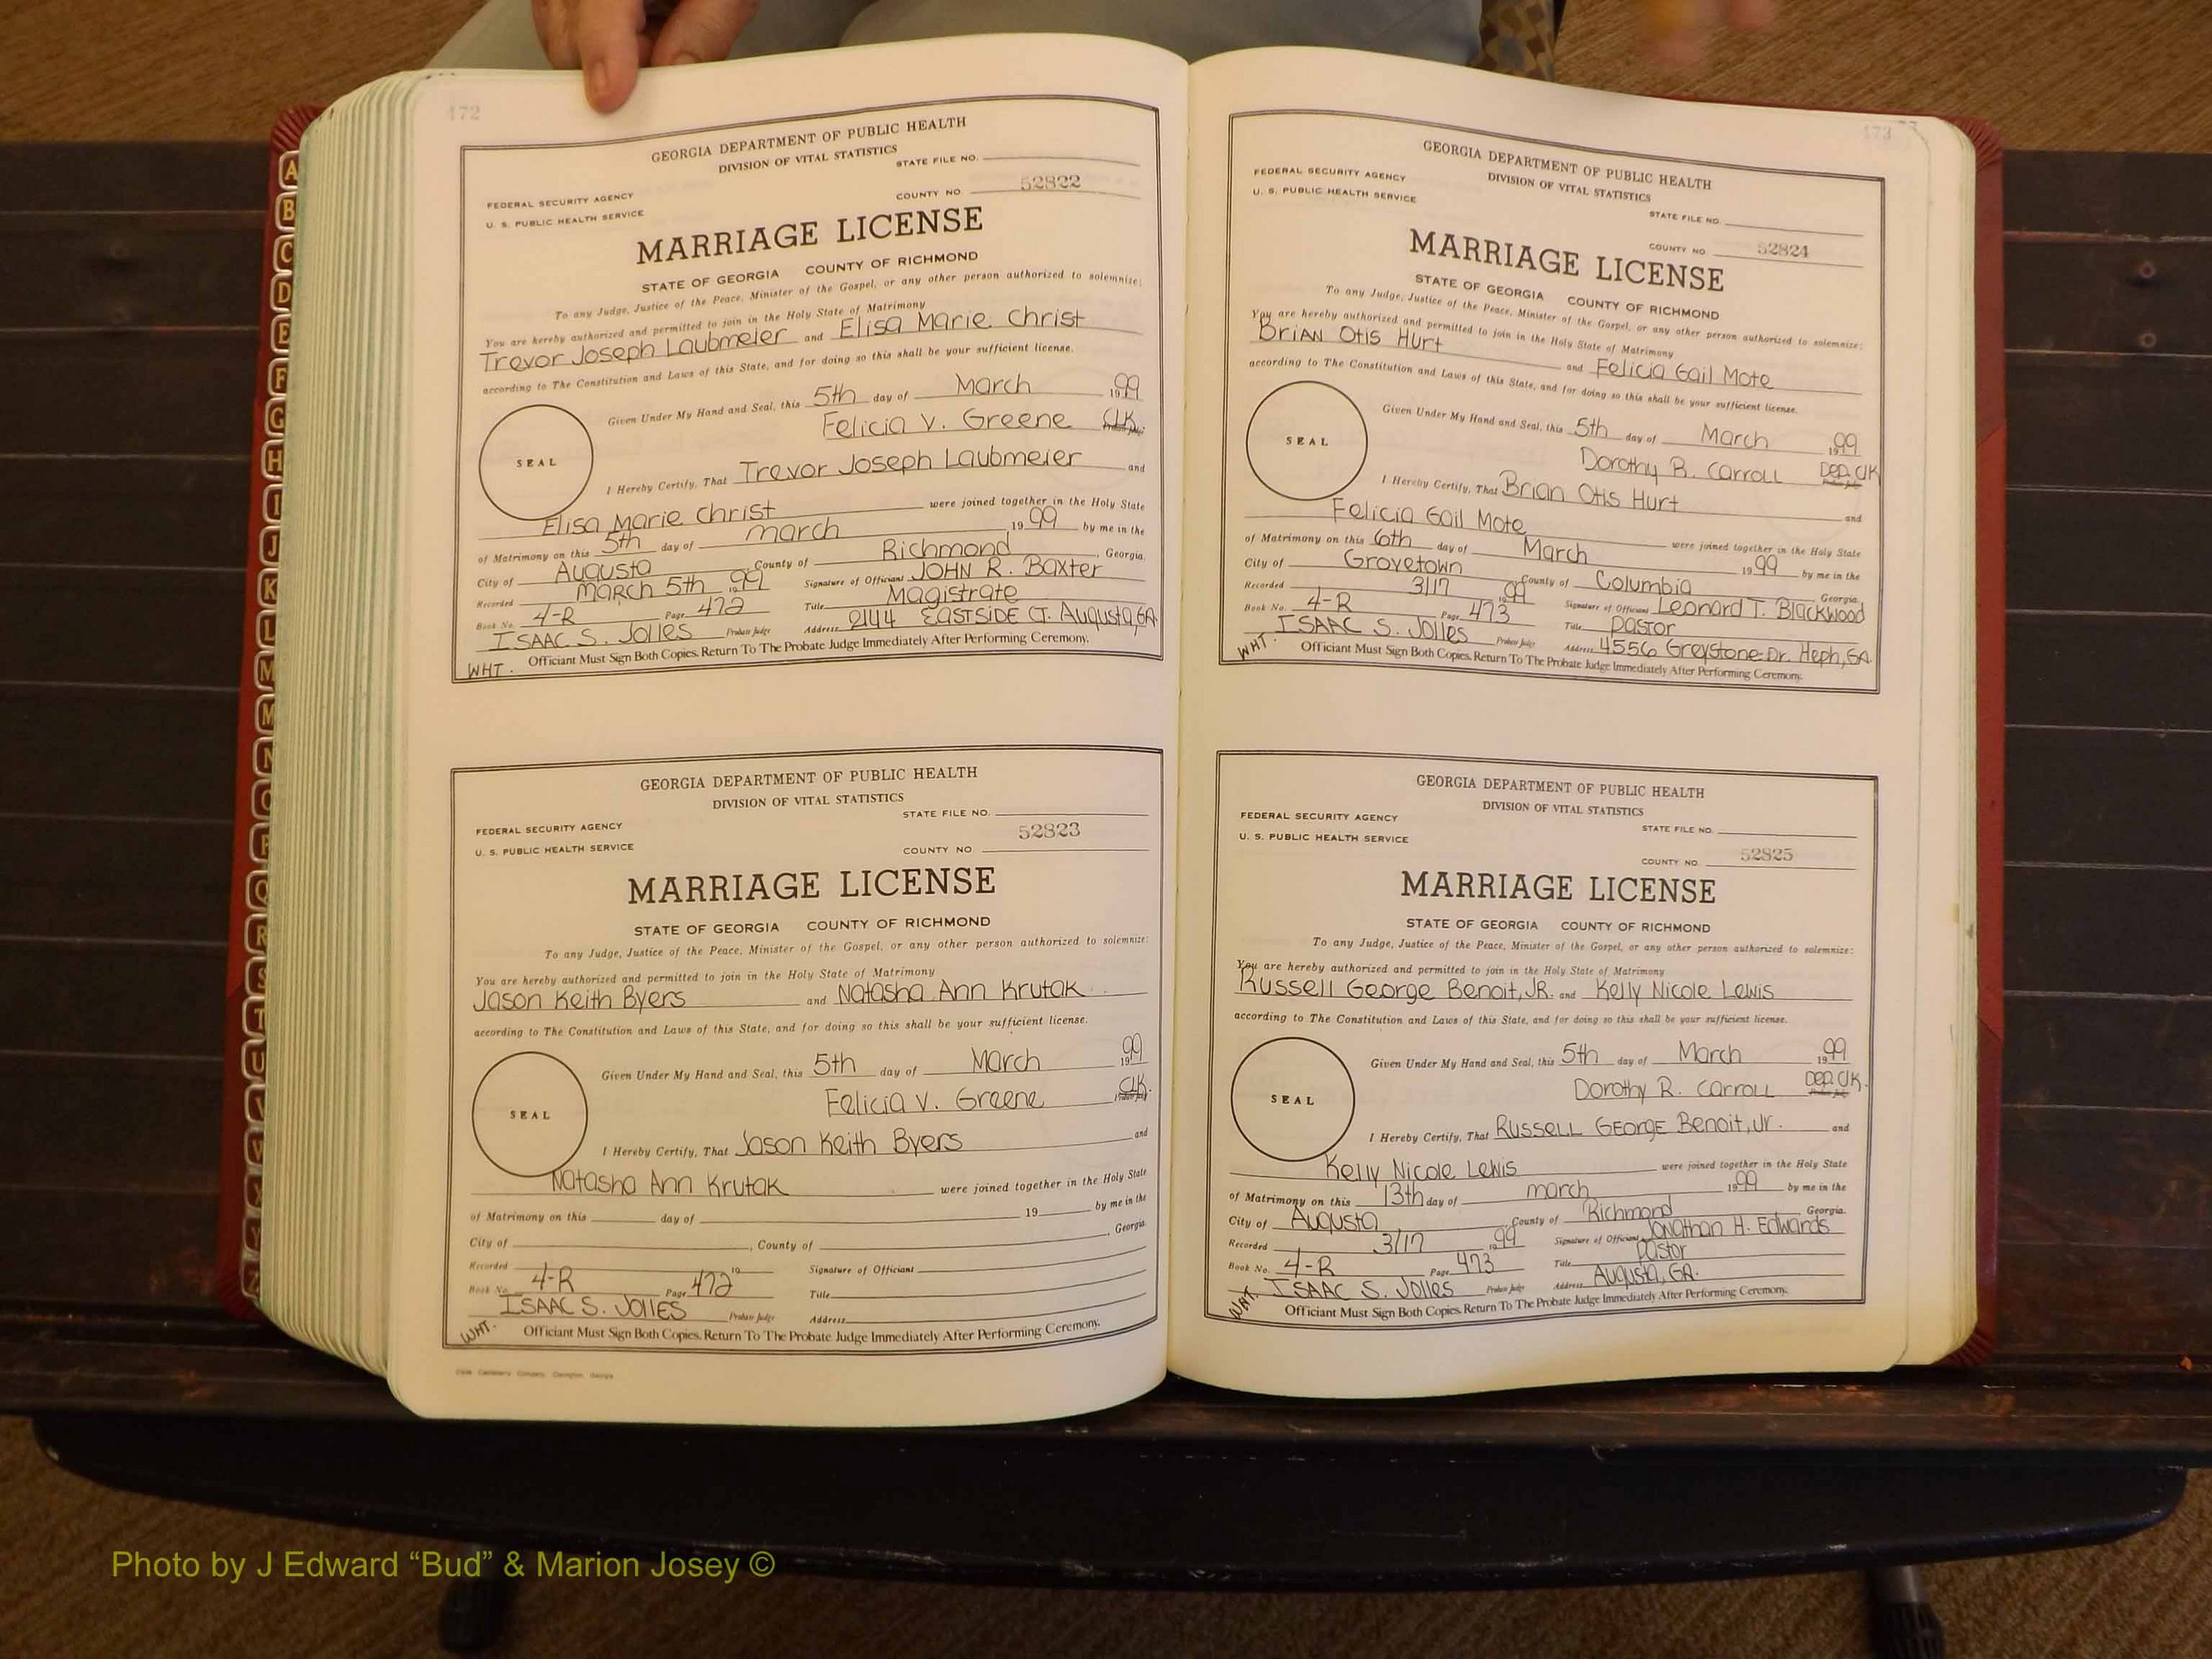 472
GEORGIA DEPARTMENT OF PUBLIC HEALTH
DIVISION OF VITAL STATISTICS
STATE FILE NO.
FEDERAL SECURITY AGENCY
COUNTY NO. 52822
U. S. PUBLIC HEALTH SERVICE
MARRIAGE LICENSE
STATE OF GEORGIA COUNTY OF RICHMOND
To any Judge, Justice of the Peace, Minister of the Gospel, or any other person authorized to solemnize:
You are hereby authorized and permitted to join in the Holy State of Matrimony
Trevor Joseph Laubmeier and Elisa Marie Christ
according to The Constitution and Laws of this State, and for doing so this shall be your sufficient license.
Given Under My Hand and Seal, this 5th day of March 1999
Felicia V. Greene Clk.
SEAL
I Hereby Certify, That Trevor Joseph Laubmeier and
Elisa Marie Christ were joined together in the Holy State
of Matrimony on this 5th day of March 1999 by me in the
City of Augusta County of Richmond, Georgia.
Recorded March 5th 1999 Signature of Officiant JOHN R. Baxter
Book No. 4-R Page 472 Title Magistrate
ISAAC S. Jolles Probate Judge Address 2144 EASTSIDE CT. Augusta, GA
WHT. Officiant Must Sign Both Copies. Return To The Probate Judge Immediately After Performing Ceremony.
GEORGIA DEPARTMENT OF PUBLIC HEALTH
DIVISION OF VITAL STATISTICS
STATE FILE NO.
FEDERAL SECURITY AGENCY
52823
U. S. PUBLIC HEALTH SERVICE COUNTY NO.
MARRIAGE LICENSE
STATE OF GEORGIA COUNTY OF RICHMOND
To any Judge, Justice of the Peace, Minister of the Gospel, or any other person authorized to solemnize:
You are hereby authorized and permitted to join in the Holy State of Matrimony
Jason Keith Byers and Natasha Ann Krutak
according to The Constitution and Laws of this State, and for doing so this shall be your sufficient license.
Given Under My Hand and Seal, this 5th day of March 1999
Felicia V. Greene Clk.
SEAL
I Hereby Certify, That Jason Keith Byers and
Natasha Ann Krutak were joined together in the Holy State
of Matrimony on this day of 19 by me in the
City of , County of , Georgia.
Recorded 19 Signature of Officiant
Book No. 4-R Page 472 Title
ISAAC S. Jolles Probate Judge Address
WHT. Officiant Must Sign Both Copies. Return To The Probate Judge Immediately After Performing Ceremony.
473
GEORGIA DEPARTMENT OF PUBLIC HEALTH
DIVISION OF VITAL STATISTICS
FEDERAL SECURITY AGENCY
U. S. PUBLIC HEALTH SERVICE
STATE FILE NO.
COUNTY NO 52824
MARRIAGE LICENSE
STATE OF GEORGIA COUNTY OF RICHMOND
To any Judge, Justice of the Peace, Minister of the Gospel, or any other person authorized to solemnize:
You are hereby authorized and permitted to join in the Holy State of Matrimony
Brian Otis Hurt and Felicia Gail Mote
according to The Constitution and Laws of this State, and for doing so this shall be your sufficient license.
Given Under My Hand and Seal, this 5th day of March 1999
Dorothy R. Carroll Dep. Clk
SEAL
I Hereby Certify, That Brian Otis Hurt and
Felicia Gail Mote were joined together in the Holy State
of Matrimony on this 6th day of March 1999 by me in the
City of Grovetown County of Columbia Georgia
Recorded 3/17 1999 Signature of Officiant Leonard T. Blackwood
Book No. 4-R Page 473 Title Pastor
ISAAC S. Jolles Probate Judge Address 4556 Greystone Dr. Heph, GA
WHT. Officiant Must Sign Both Copies. Return To The Probate Judge Immediately After Performing Ceremony.
GEORGIA DEPARTMENT OF PUBLIC HEALTH
DIVISION OF VITAL STATISTICS
FEDERAL SECURITY AGENCY
STATE FILE NO.
U. S. PUBLIC HEALTH SERVICE
COUNTY NO. 52825
MARRIAGE LICENSE
STATE OF GEORGIA COUNTY OF RICHMOND
To any Judge, Justice of the Peace, Minister of the Gospel, or any other person authorized to solemnize:
You are hereby authorized and permitted to join in the Holy State of Matrimony
Russell George Benoit, JR. and Kelly Nicole Lewis
according to The Constitution and Laws of this State, and for doing so this shall be your sufficient license.
Given Under My Hand and Seal, this 5th day of March 1999
Dorothy R. Carroll Dep. Clk.
SEAL
I Hereby Certify, That Russell George Benoit, Jr. and
Kelly Nicole Lewis were joined together in the Holy State
of Matrimony on this 13th day of March 1999 by me in the
City of Augusta, County of Richmond Georgia.
Recorded 3/17 1999 Signature of Officiant Jonathan H. Edwards
Book No. 4-R Page 473 Title Pastor
ISAAC S. Jolles Probate Judge Address Augusta, GA.
WHT. Officiant Must Sign Both Copies. Return To The Probate Judge Immediately After Performing Ceremony.
A
B
C
D
E
F
G
H
I
J
K
L
M
M
N
O
P
Q
R
S
T
U
V
W
X
Y
Z
Photo by J Edward “Bud” & Marion Josey ©